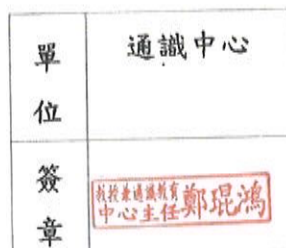 單位
通識中心
簽章
教授兼通識教育
中心主任鄭琨鴻